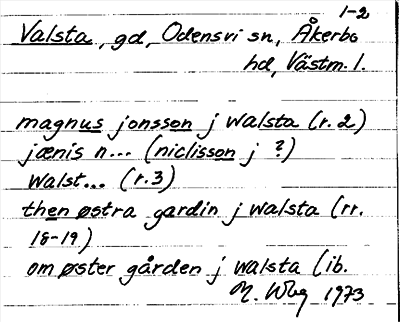 1-2
Valsta, gd, Odensvi sn, Åkerbo
hd, Västm. l.
magnus jonsson j walsta (r. 2)
jænis n... (niclisson j ?)
walst... (r.3)
then østra gardin j walsta (rr.
18-19)
om øster gården j walsta (ib.
M. Wbg 1973